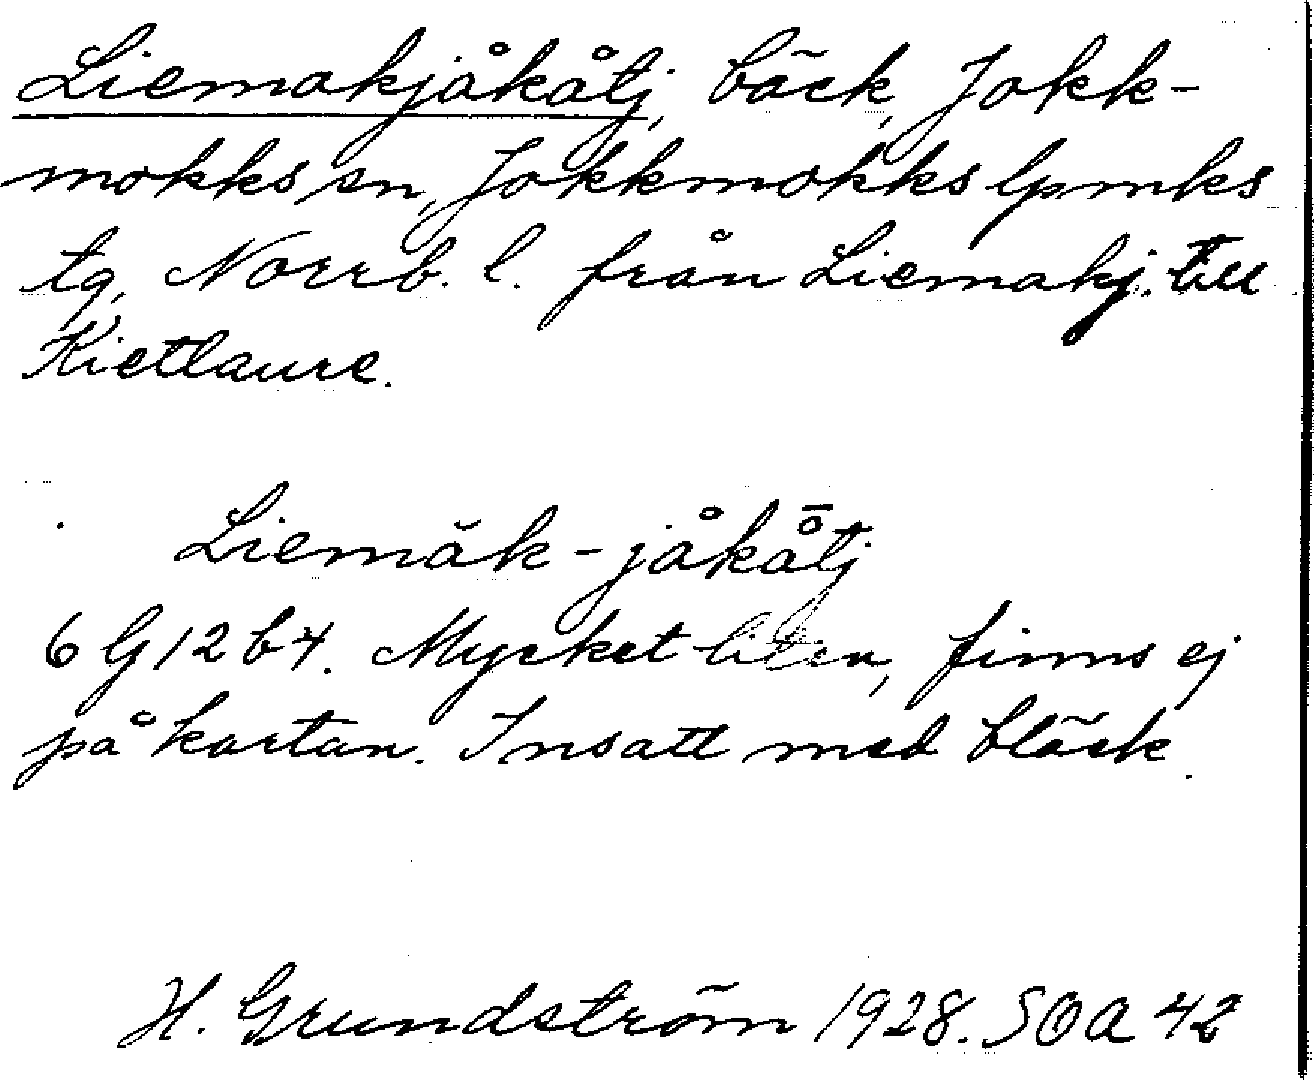 Liemakjåkåtj, bäck, Jokk-
mokks sn, Jokkmokks lpmks
tg, Norrb. l. från Liemakj. till
Kietlaure.
Liemăk-jåkå̄tj
6 G 12 b 4. Mycket liten, finns ej
på kartan. Insatt med bläck.
H. Grundström 1928. SOA 42